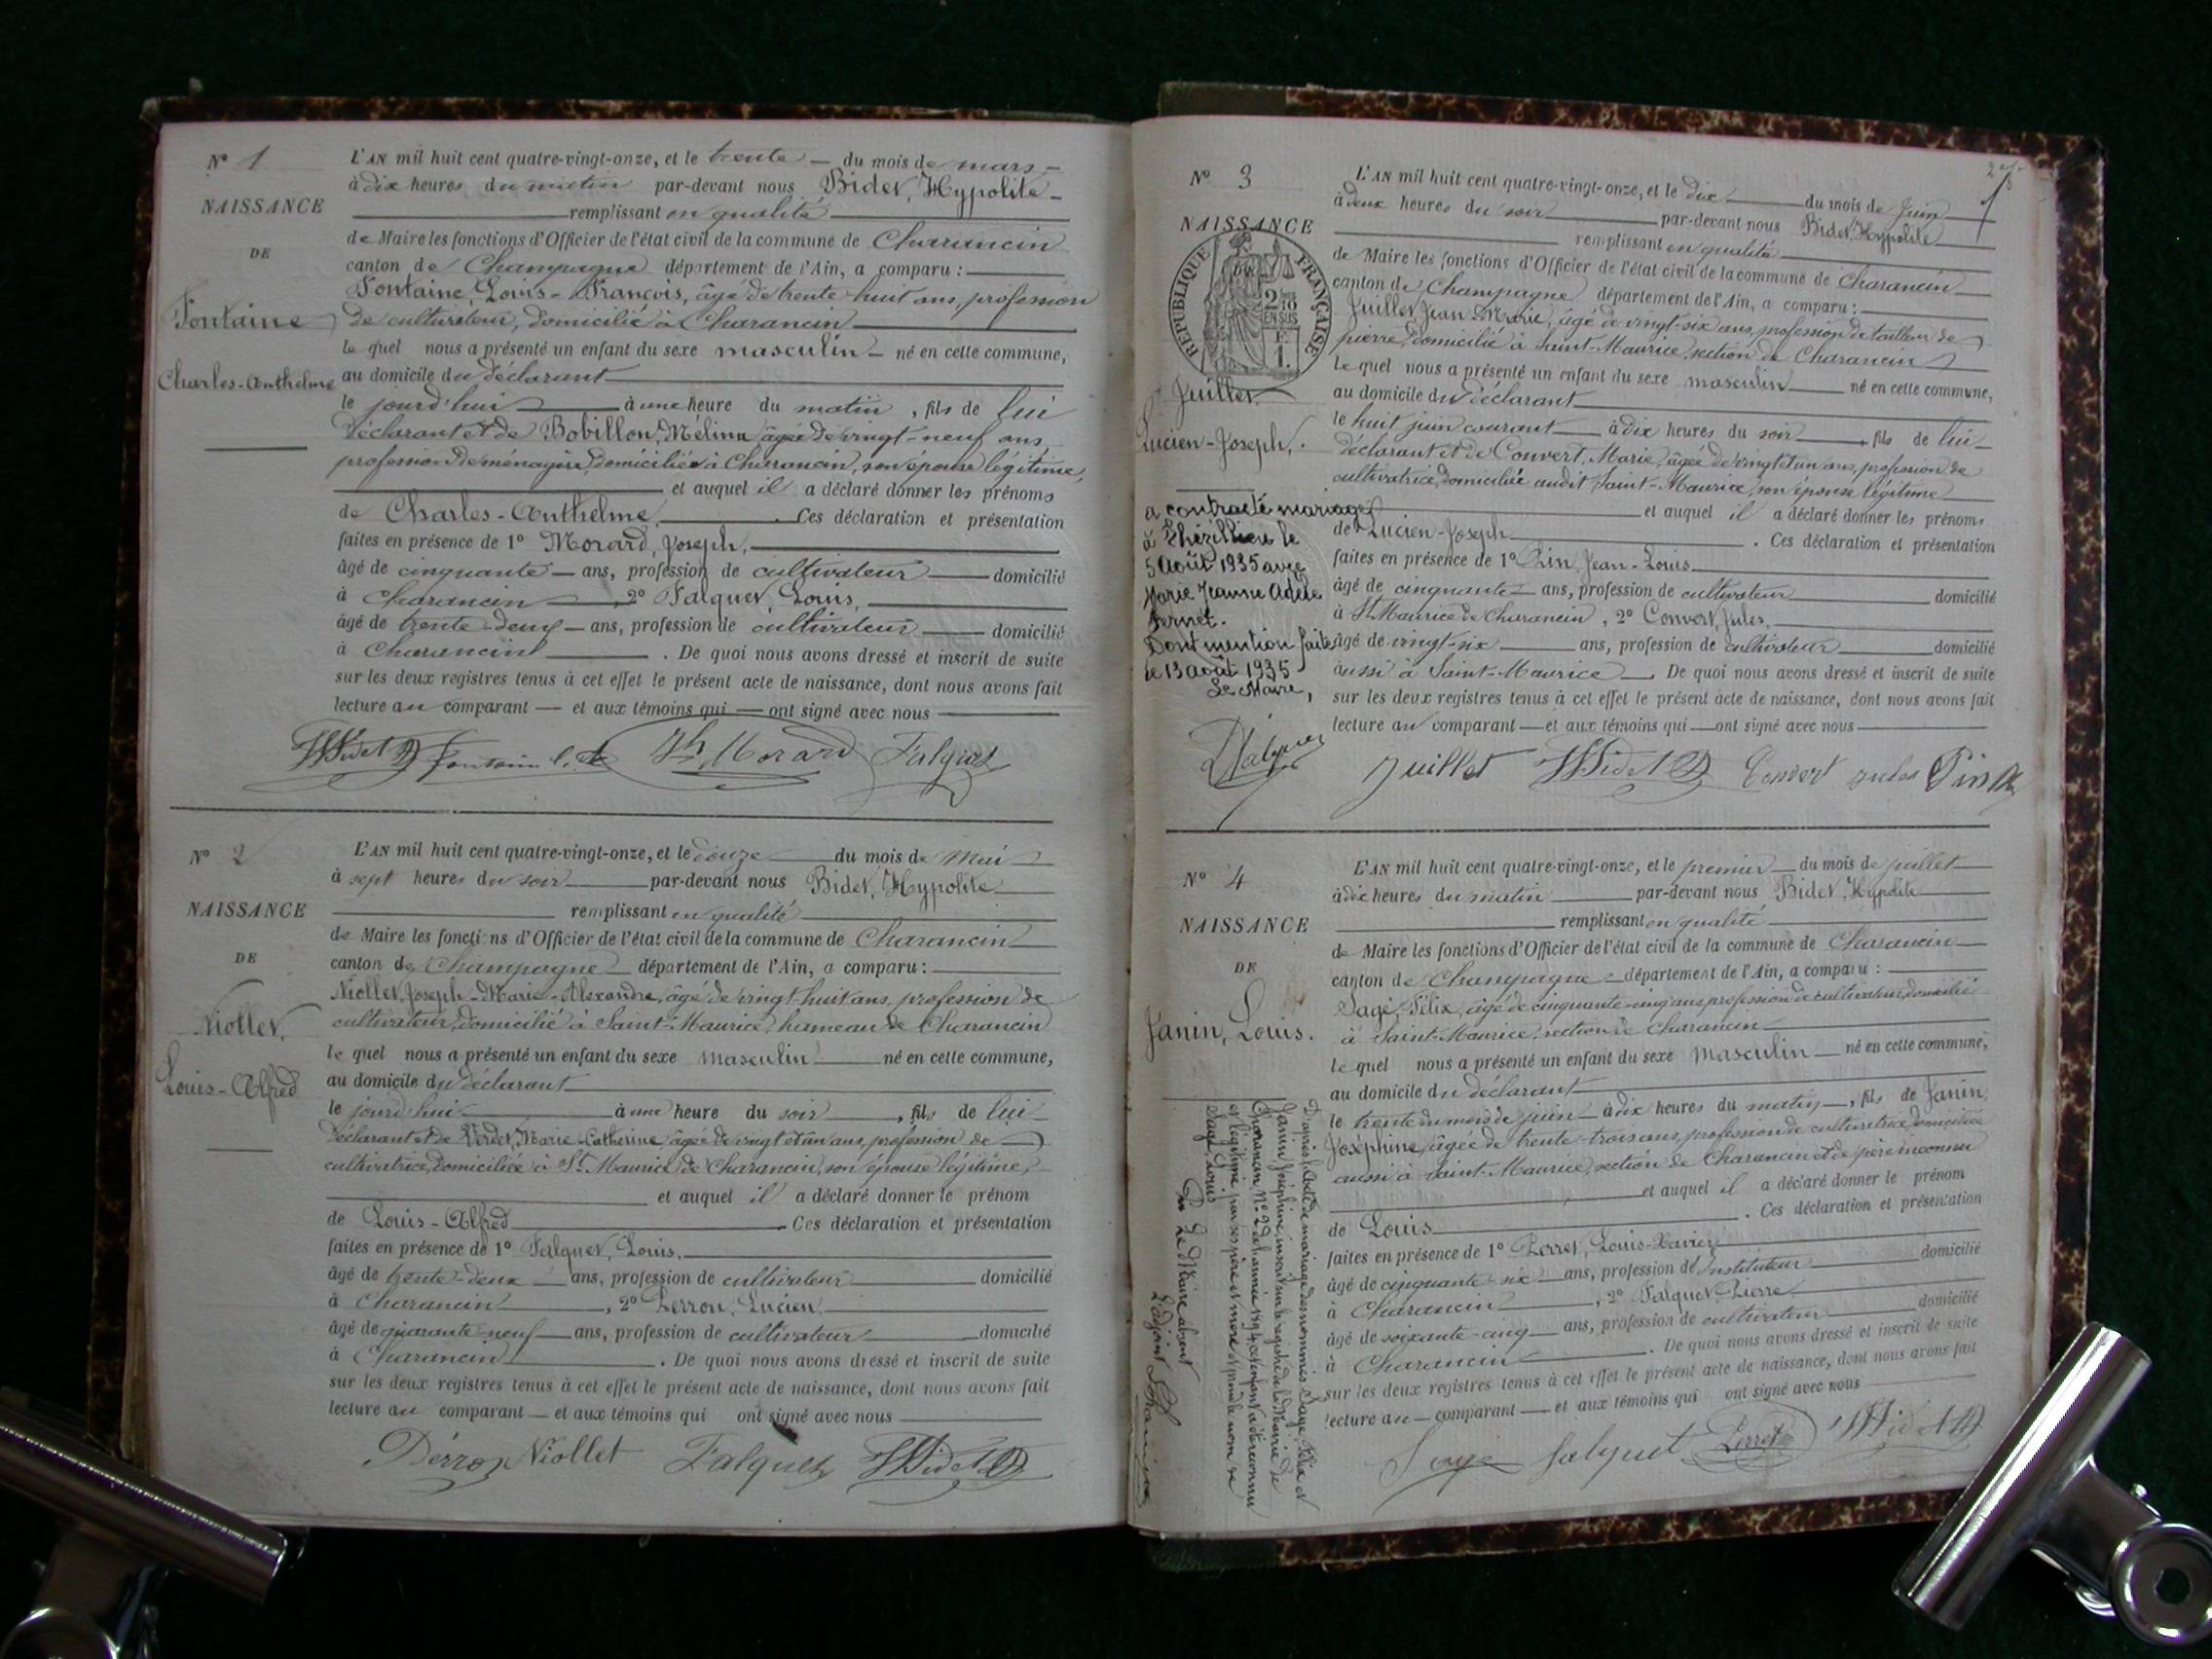 N° 1
NAISSANCE
DE
Fontaine
Charles-Anthelme
L'AN mil huit cent quatre-vingt-onze, et le trente du mois de mars
à dix heures du matin par-devant nous Bidet, Hypolite
remplissant en qualité
de Maire les fonctions d'Officier de l'état civil de la commune de Charancin
canton de Champagne département de l'Ain, a comparu :
Fontaine, Louis-François, âgé de trente-huit ans, profession
de cultivateur, domicilié à Charancin
lequel nous a présenté un enfant du sexe masculin né en cette commune,
au domicile du déclarant
le jourd'hui à une heure du matin, fils de lui
déclarant et de Bobillon, Mélina, âgée de vingt-neuf ans,
profession de ménagère, domiciliée à Charancin, son épouse légitime,
et auquel il a déclaré donner les prénoms
de Charles-Anthelme. Ces déclaration et présentation
faites en présence de 1° Morard, Joseph,
âgé de cinquante ans, profession de cultivateur domicilié
à Charancin, 2° Falquet, Louis,
âgé de trente-deux ans, profession de cultivateur domicilié
à Charancin. De quoi nous avons dressé et inscrit de suite
sur les deux registres tenus à cet effet le présent acte de naissance, dont nous avons fait
lecture au comparant et aux témoins qui ont signé avec nous
HBidet Fontaine L. Jh Morard Falquet
N° 2
NAISSANCE
DE
Niollet,
Louis-Alfred
L'AN mil huit cent quatre-vingt-onze, et le douze du mois de Mai
à sept heures du soir par-devant nous Bidet, Hypolite
remplissant en qualité
de Maire les fonctions d'Officier de l'état civil de la commune de Charancin
canton de Champagne département de l'Ain, a comparu :
Niollet, Joseph-Marie-Alexandre, âgé de vingt-huit ans, profession de
cultivateur, domicilié à Saint-Maurice, hameau de Charancin
lequel nous a présenté un enfant du sexe masculin né en cette commune,
au domicile du déclarant
le jourd'hui à une heure du soir, fils de lui
déclarant et de Verdet, Marie-Catherine, âgée de vingt et un ans, profession de
cultivatrice, domiciliée à St. Maurice de Charancin, son épouse légitime,
et auquel il a déclaré donner le prénom
de Louis-Alfred. Ces déclaration et présentation
faites en présence de 1° Falquet, Louis,
âgé de trente-deux ans, profession de cultivateur domicilié
à Charancin, 2° Perron, Lucien
âgé de quarante-neuf ans, profession de cultivateur domicilié
à Charancin. De quoi nous avons dressé et inscrit de suite
sur les deux registres tenus à cet effet le présent acte de naissance, dont nous avons fait
lecture au comparant et aux témoins qui ont signé avec nous
Pérron Niollet Falquet HBidet
N° 3
NAISSANCE
REPUBLIQUE FRANÇAISE
2/10 EN SUS
Juillet
Lucien-Joseph,
a contracté mariage
à Thézillieu le
5 Août 1935 avec
Marie Jeanne Adèle
Fernet.
Dont mention faite
le 13 août 1935
Le Maire,
L'AN mil huit cent quatre-vingt-onze, et le dix du mois de Juin
à deux heures du soir par-devant nous Bidet, Hypolite
remplissant en qualité
de Maire les fonctions d'Officier de l'état civil de la commune de Charancin
canton de Champagne département de l'Ain, a comparu :
Juillet, Jean-Marie, âgé de vingt-six ans, profession de tailleur de
pierre, domicilié à Saint-Maurice, section de Charancin
lequel nous a présenté un enfant du sexe masculin né en cette commune,
au domicile du déclarant
le huit juin courant à dix heures du soir, fils de lui
déclarant et de Convert, Marie, âgée de vingt et un ans, profession de
cultivatrice, domiciliée audit Saint-Maurice, son épouse légitime
et auquel il a déclaré donner les prénoms
de Lucien-Joseph. Ces déclaration et présentation
faites en présence de 1° Pin, Jean-Louis
âgé de cinquante ans, profession de cultivateur domicilié
à St Maurice de Charancin, 2° Convert, Jules,
âgé de vingt-six ans, profession de cultivateur domicilié
aussi à Saint-Maurice. De quoi nous avons dressé et inscrit de suite
sur les deux registres tenus à cet effet le présent acte de naissance, dont nous avons fait
lecture au comparant et aux témoins qui ont signé avec nous
Juillet HBidet Convert Jules Pin
N° 4
NAISSANCE
DE
Janin, Louis.
D'après l'acte de mariage des nommés Sage, Félix et
Janin, Joséphine, inscrit sur le registre de la Mairie de
Charancin, N° 2 de l'année 1894, cet enfant a été reconnu
et légitimé par ses père et mère et prend le nom de
Sage, Louis
Le Maire absent
L'adjoint
L'AN mil huit cent quatre-vingt-onze, et le premier du mois de juillet
à dix heures du matin par-devant nous Bidet, Hypolite
remplissant en qualité
de Maire les fonctions d'Officier de l'état civil de la commune de Charancin
canton de Champagne département de l'Ain, a comparu :
Sage, Félix, âgé de cinquante-cinq ans, profession de cultivateur, domicilié
à Saint-Maurice, section de Charancin
lequel nous a présenté un enfant du sexe masculin né en cette commune,
au domicile du déclarant
le trente du mois de juin à dix heures du matin, fils de Janin,
Joséphine, âgée de trente-trois ans, profession de cultivatrice domiciliée
aussi à Saint-Maurice, section de Charancin et de père inconnu
et auquel il a déclaré donner le prénom
de Louis. Ces déclaration et présentation
faites en présence de 1° Perret, Louis-Xavier
âgé de cinquante-six ans, profession d'instituteur domicilié
à Charancin, 2° Falquet, Pierre
âgé de soixante-cinq ans, profession de cultivateur domicilié
à Charancin. De quoi nous avons dressé et inscrit de suite
sur les deux registres tenus à cet effet le présent acte de naissance, dont nous avons fait
lecture au comparant et aux témoins qui ont signé avec nous
Sage falquet Perret HBidet